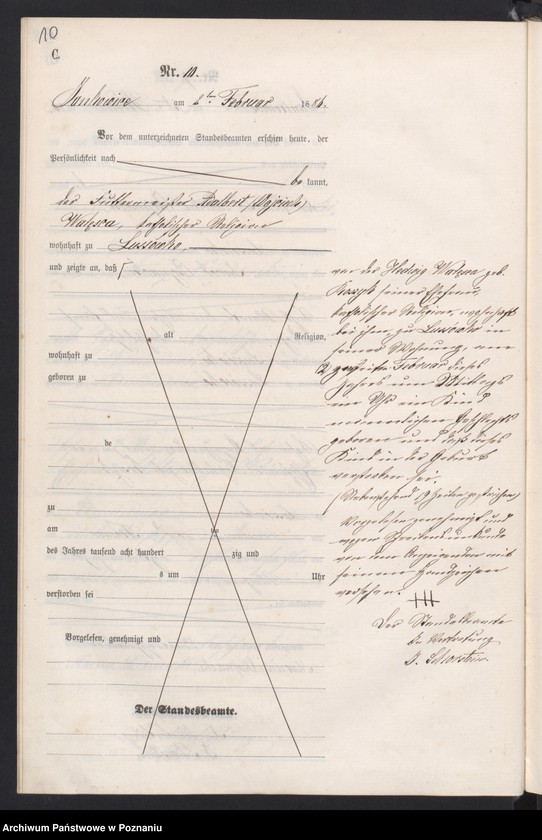 10
C
Nr. 10.
am 2ten Februar 1886.
Vor dem unterzeichneten Standesbeamten erschien heute, der
Persönlichkeit nach
be kannt,
der Futtermeister Adalbert (Wojciech)
Walesca, katholischer Religion
wohnhaft zu Lussowko,
und zeigte an, daß
von der Hedwig Walesca geb.
seiner Ehefrau,
katholischer Religion, wohnhaft
bei ihm zu Lussowko in
seiner Wohnung, am
zweiten Februar dieses
Jahres um Mittags
Uhr ein Kind
männlichen Geschlechts
geboren und daß dieses
Kind in der Geburt
verstorben sei.
(Nebenstehend 9 Zeilen gestrichen)
Vorgelesen, genehmigt und
wegen Schreibensunkunde
von dem Deklaranten mit
seinem Handzeichen
versehen.
+++
Der Standesbeamte
In Vertretung
alt
Religion,
wohnhaft zu
geboren zu
de
zu
am
des Jahres tausend acht hundert zig und
s um Uhr
verstorben sei
Vorgelesen, genehmigt und
Der Standesbeamte.
Archiwum Państwowe w Poznaniu